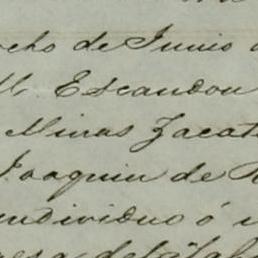 ocho de Junio
M. Escandon
Minas Zacate
Joaquin de
individuo ó